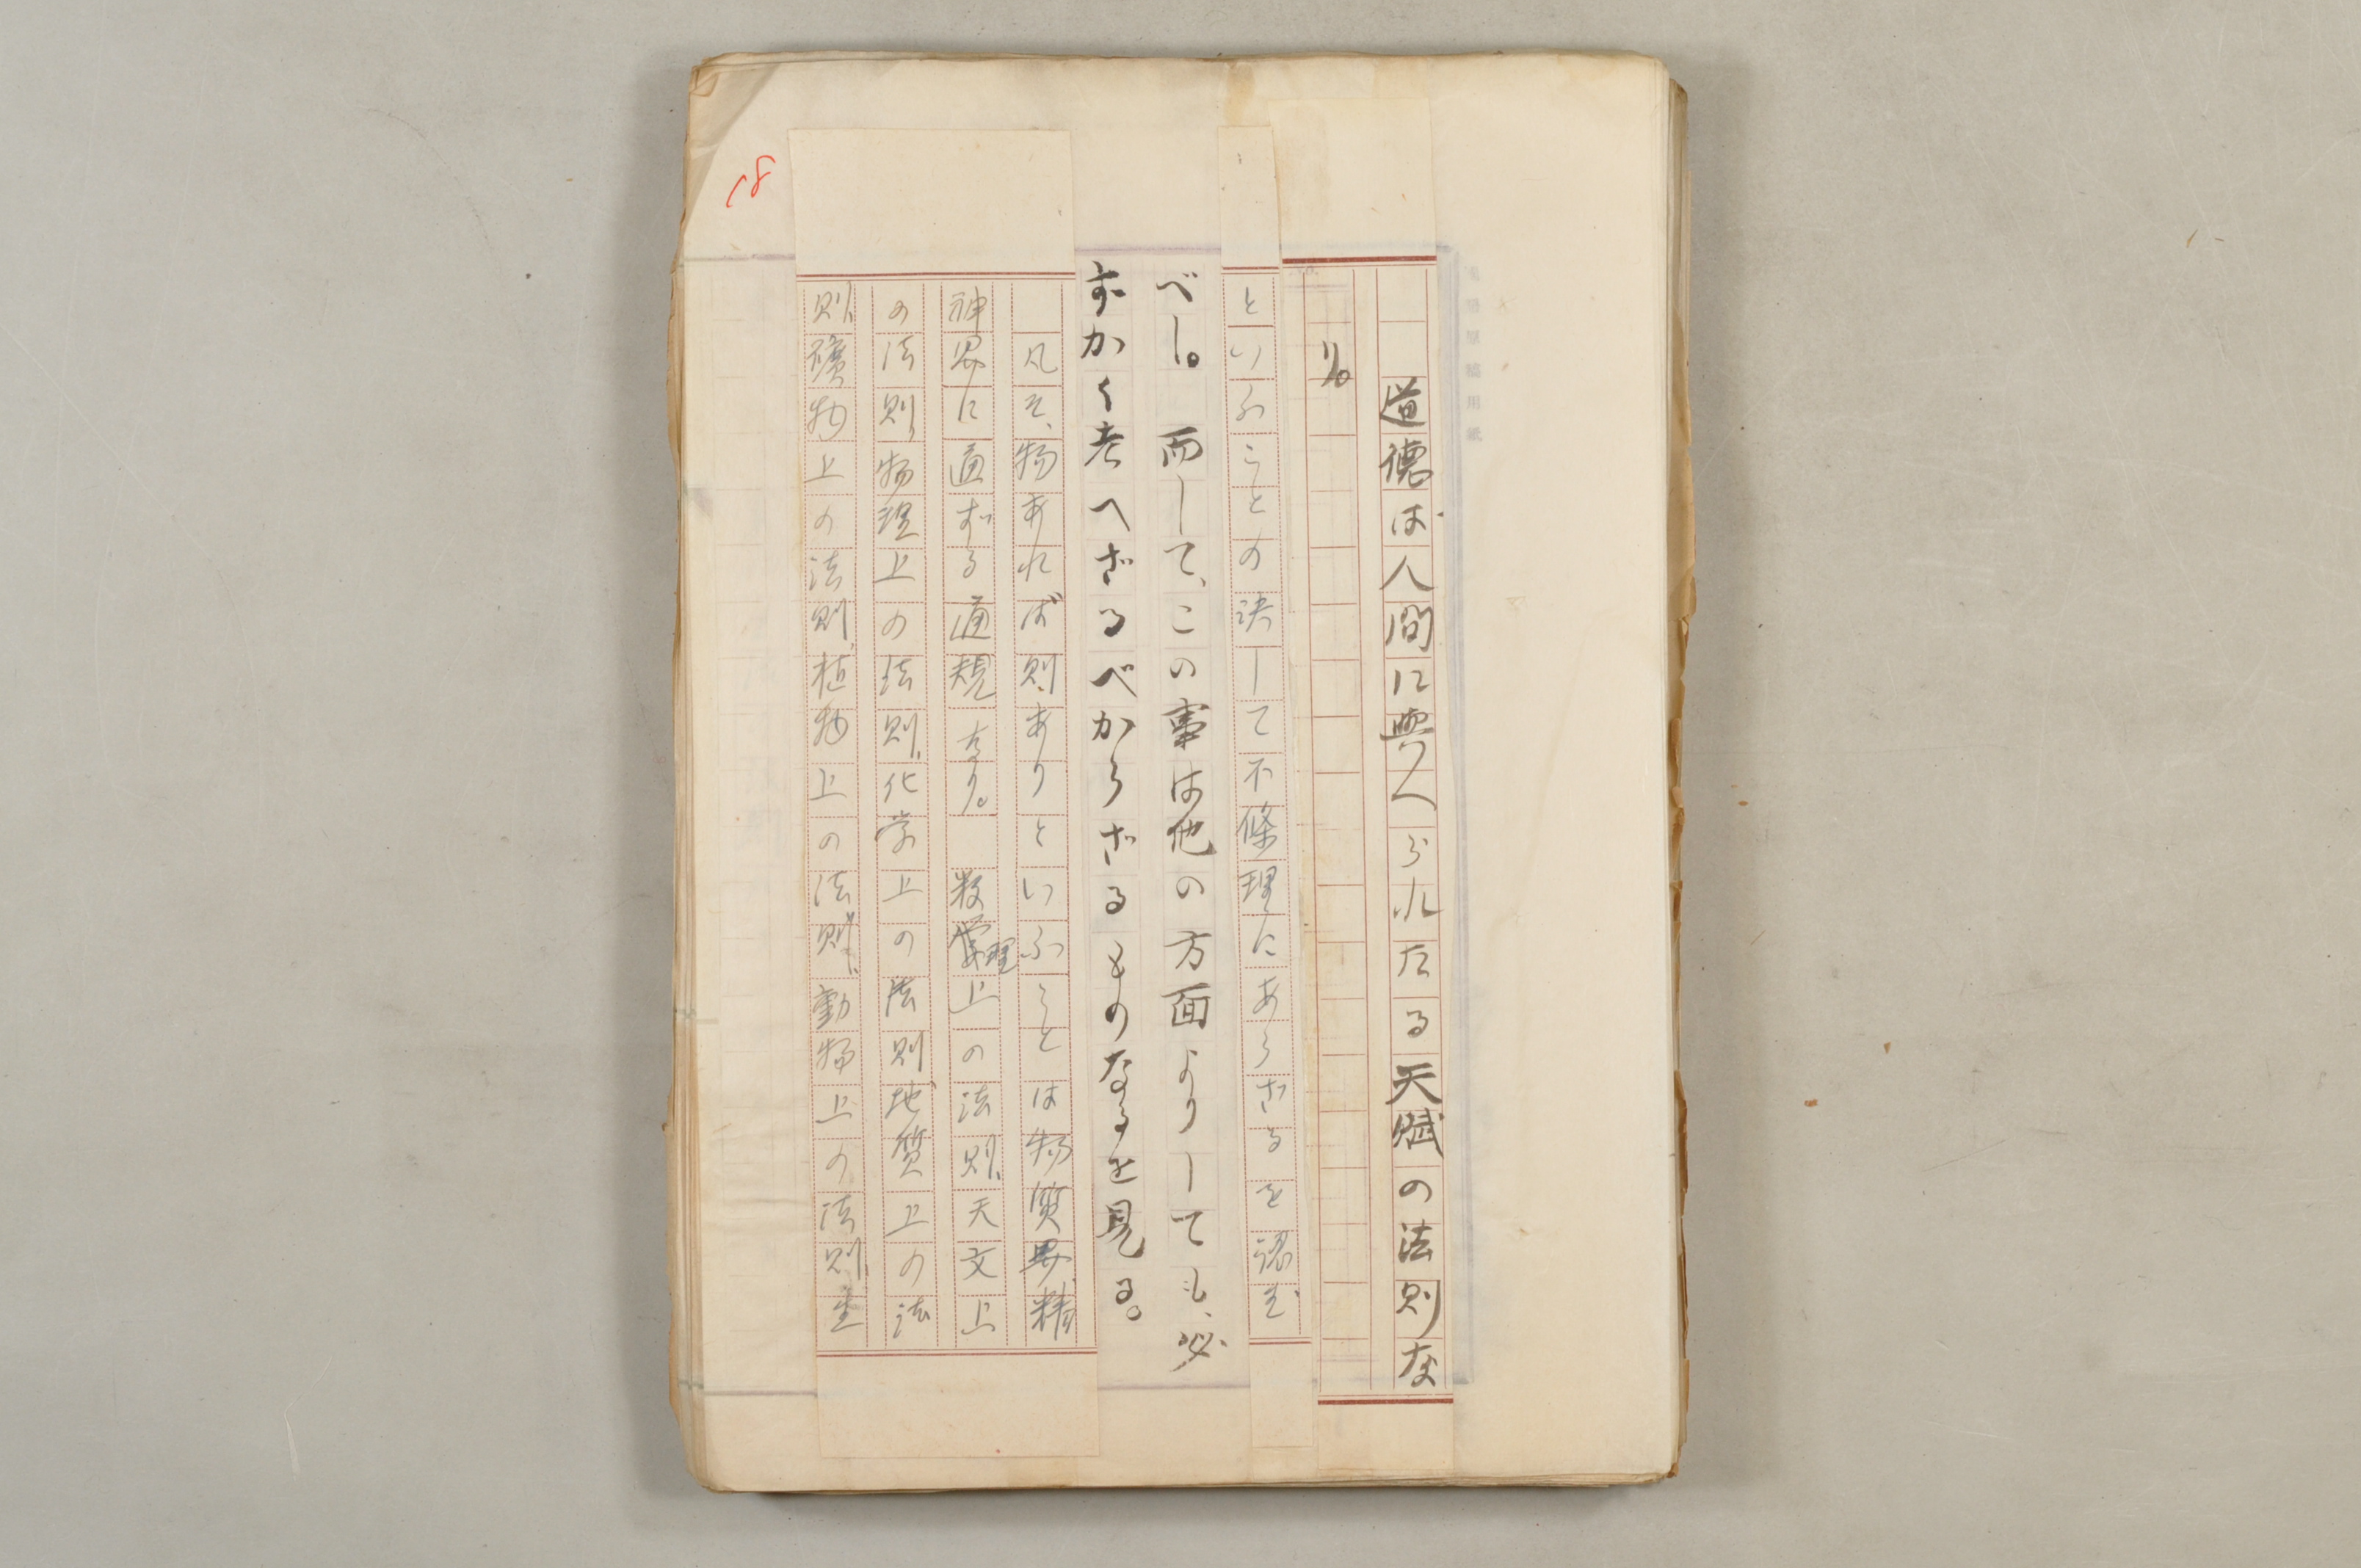 道德は人間に與へられたる天賦の法則な
り。
といふことの決して不條理にあらざるを認む
べし。而して、この事は他の方面よりしても、必
ずかく考へざるべからざるものなるを見る。
凡そ、物あれば則ありといふことは物質界、精
神界に通ずる通規なり。数理上の法則、天文上
の法則、物理上の法則、化学上の法則地質上の法
則、礦物上の法則、植物上の法則、動物上の法則、生
18